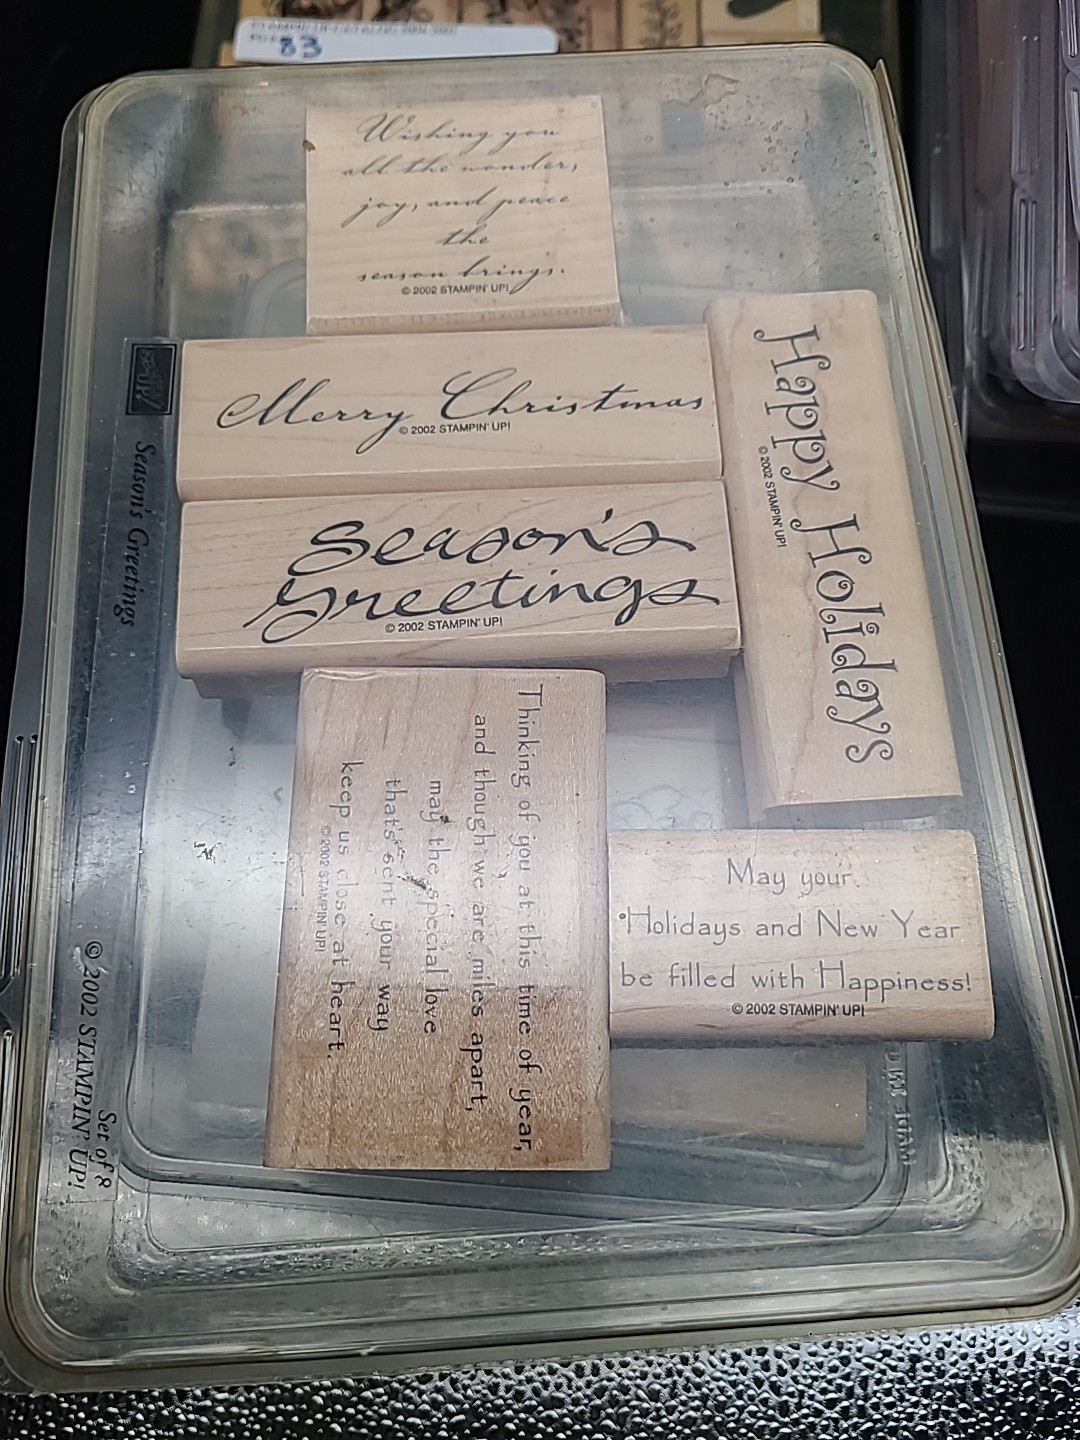 83
Wishing you
all the wonder,
joy, and peace
the
season brings.
© 2002 STAMPIN' UP!
Merry Christmas
© 2002 STAMPIN' UP!
Season's
Greetings
© 2002 STAMPIN' UP!
Happy Holidays
© 2002 STAMPIN' UP!
Thinking of you at this time of year,
and though we are miles apart,
may the special love
that's sent your way
keep us close at heart.
© 2002 STAMPIN' UP!
May your
Holidays and New Year
be filled with Happiness!
© 2002 STAMPIN' UP!
Season's Greetings
Set of 8
© 2002 STAMPIN' UP!